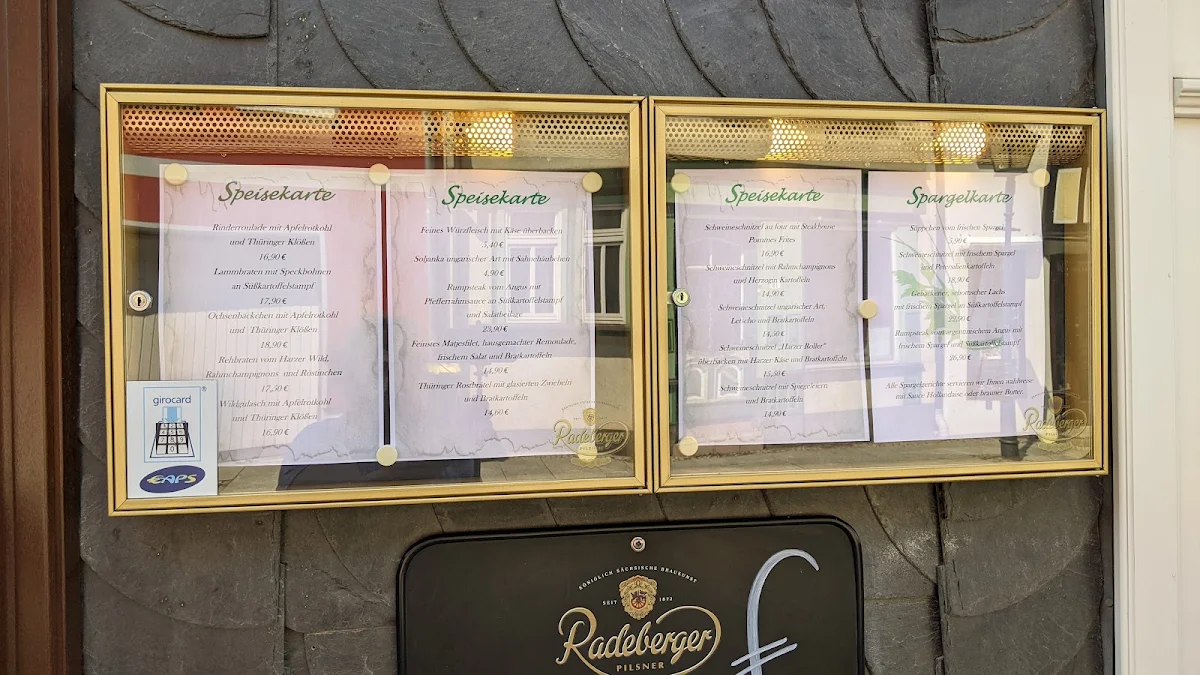 Speisekarte
Rinderroulade mit Apfelrotkohl
und Thüringer Klößen
16,90 €
Lammbraten mit Speckbohnen
an Süßkartoffelstampf
17,90 €
Ochsenbäckchen mit Apfelrotkohl
und Thüringer Klößen
18,90 €
Rehbraten vom Harzer Wild,
Rahmchampignons und Röstinchen
17,50 €
Wildgulasch mit Apfelrotkohl
und Thüringer Klößen
16,90 €
girocard
EAPS
Speisekarte
Feines Würzfleisch mit Käse überbacken
5,40 €
Soljanka ungarischer Art mit Sahnehäubchen
4,90 €
Rumpsteak vom Angus mit
Pfefferrahmsauce an Süßkartoffelstampf
und Salatbeilage
23,90 €
Feinstes Matjesfilet, hausgemachter Remoulade,
frischem Salat und Bratkartoffeln
14,90 €
Thüringer Rostbrätel mit glasierten Zwiebeln
und Bratkartoffeln
14,60 €
Radeberger
Speisekarte
Schweineschnitzel au four mit Steakhouse
Pommes Frites
16,90 €
Schweineschnitzel mit Rahmchampignons
und Herzogin Kartoffeln
14,90 €
Schweineschnitzel ungarischer Art,
Letscho und Bratkartoffeln
14,50 €
Schweineschnitzel „Harzer Roller"
überbacken mit Harzer Käse und Bratkartoffeln
15,50 €
Schweineschnitzel mit Spiegeleiern
und Bratkartoffeln
14,90 €
Spargelkarte
Süppchen von frischen Spargel
5,90 €
Schweineschnitzel mit frischem Spargel
und Petersilienkartoffeln
18,90 €
Gebackener, schottischer Lachs
mit frischem Spargel an Süßkartoffelstampf
Rumpsteak vom argentinischem Angus mit
frischem Spargel und Süßkartoffelstampf
26,90 €
Alle Spargelgerichte servieren wir Ihnen wahlweise
mit Sauce Hollandaise oder brauner Butter.
Radeberger
KÖNIGLICH SÄCHSISCHE BRAUKUNST
SEIT 1872
Radeberger
PILSNER